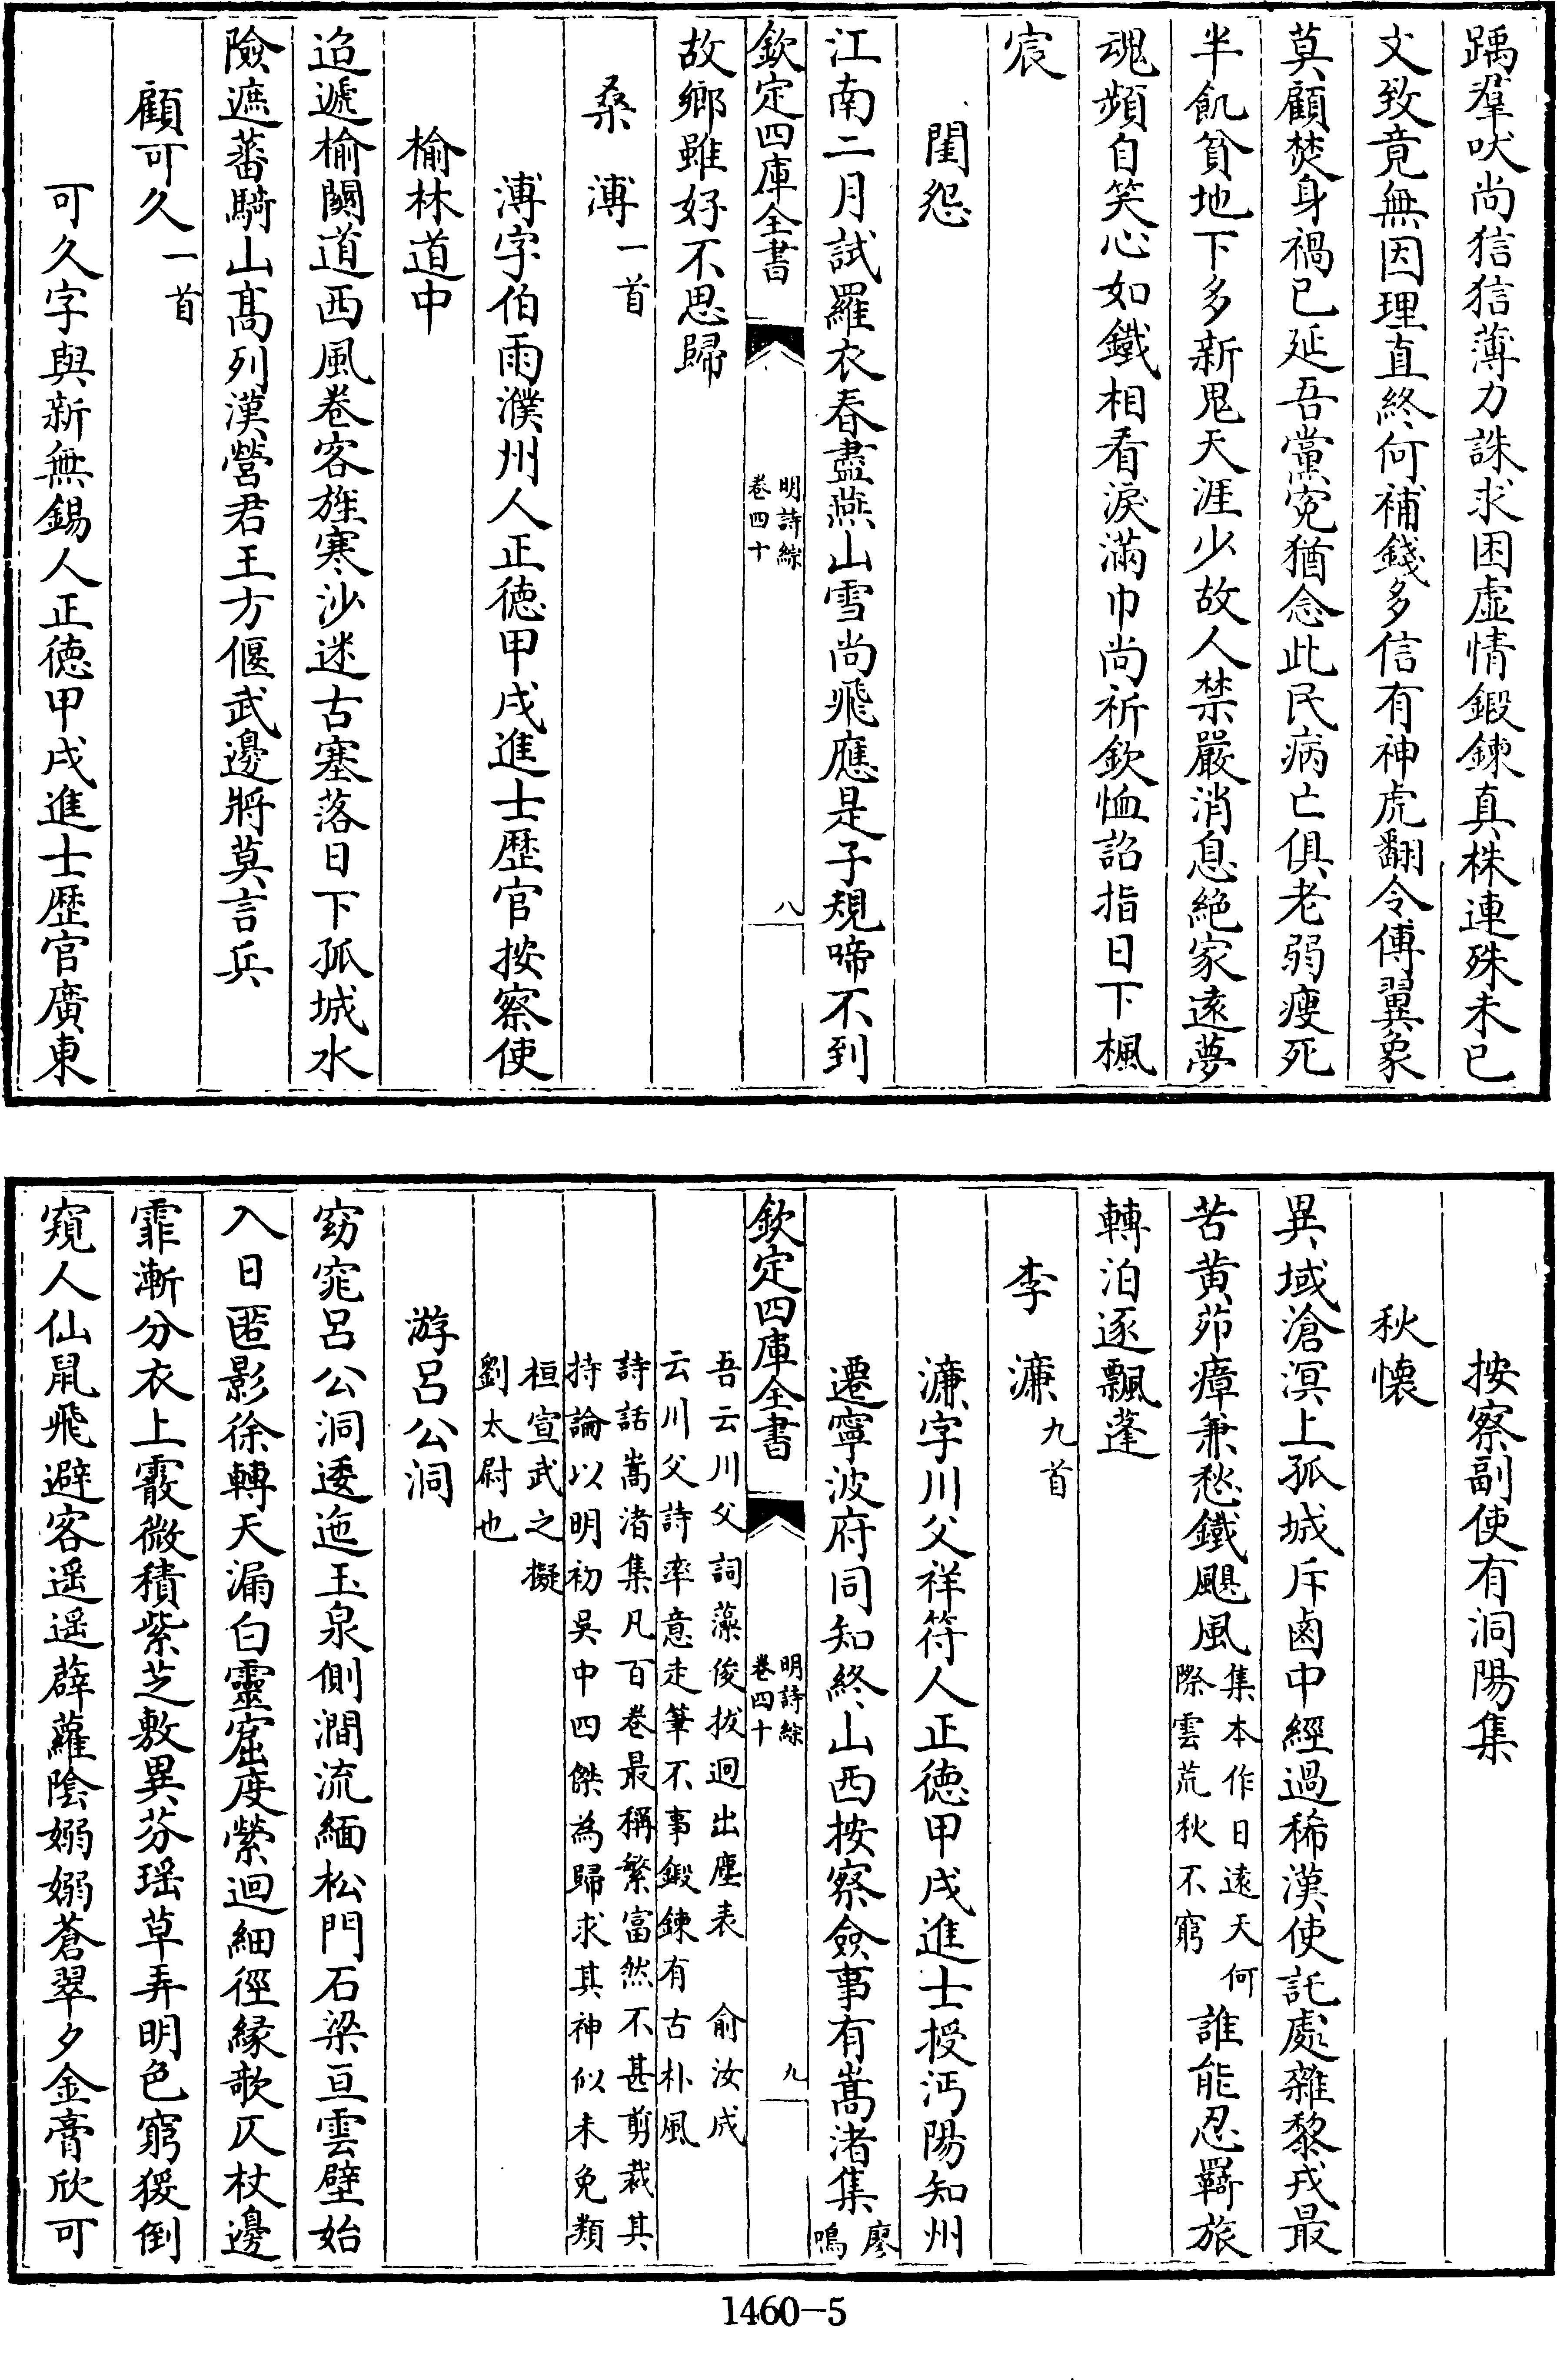 踽羣吠尚狺狺薄力誅求困虛情鍛鍊真株連殊未已
文致竟無因理直終何補錢多信有神虎翻令傅翼象
莫顧焚身禍已延吾黨寃猶念此民病亡俱老弱瘦死
半飢貧地下多新鬼天涯少故人禁嚴消息絶家遠夢
魂頻自笑心如鐵相看淚滿巾尚祈欽恤詔指日下楓
宸
閨怨
江南二月試羅衣春盡燕山雪尚飛應是子規啼不到
欽定四庫全書
明詩綜
卷四十
八
故鄉雖好不思歸
桑溥一首
溥字伯雨濮州人正德甲戌進士歷官按察使
榆林道中
迢遞榆關道西風卷客旌寒沙迷古塞落日下孤城水
險遮蕃騎山髙列漢營君王方偃武邊將莫言兵
顧可久一首
可久字與新無錫人正德甲戌進士歷官廣東
按察副使有洞陽集
秋懷
異域滄溟上孤城斥鹵中經過稀漢使託處雜黎戎最
苦黄茆瘴兼愁鐵颶風集本作日遠天何際雲荒秋不窮誰能忍羇旅
轉泊逐飄蓬
李濂九首
濂字川父祥符人正德甲戌進士授沔陽知州
遷寧波府同知終山西按察僉事有嵩渚集廖鳴
欽定四庫全書
明詩綜
卷四十
九
吾云川父詞藻俊拔迥出塵表 俞汝成
云川父詩率意走筆不事鍛鍊有古朴風
詩話嵩渚集凡百卷最稱繁富然不甚剪裁其
持論以明初吳中四傑為歸求其神似未免類
桓宣武之擬
劉太尉也
游呂公洞
窈窕呂公洞逶迤玉泉側澗流緬松門石梁亘雲壁始
入日匿影徐轉天漏白靈窟度縈迴細徑緣欹仄杖邊
霏漸分衣上霰微積紫芝敷異芬瑶草弄明色窮猨倒
窺人仙鼠飛避客遥遥薜蘿陰嫋嫋蒼翠夕金膏欣可
1460—5